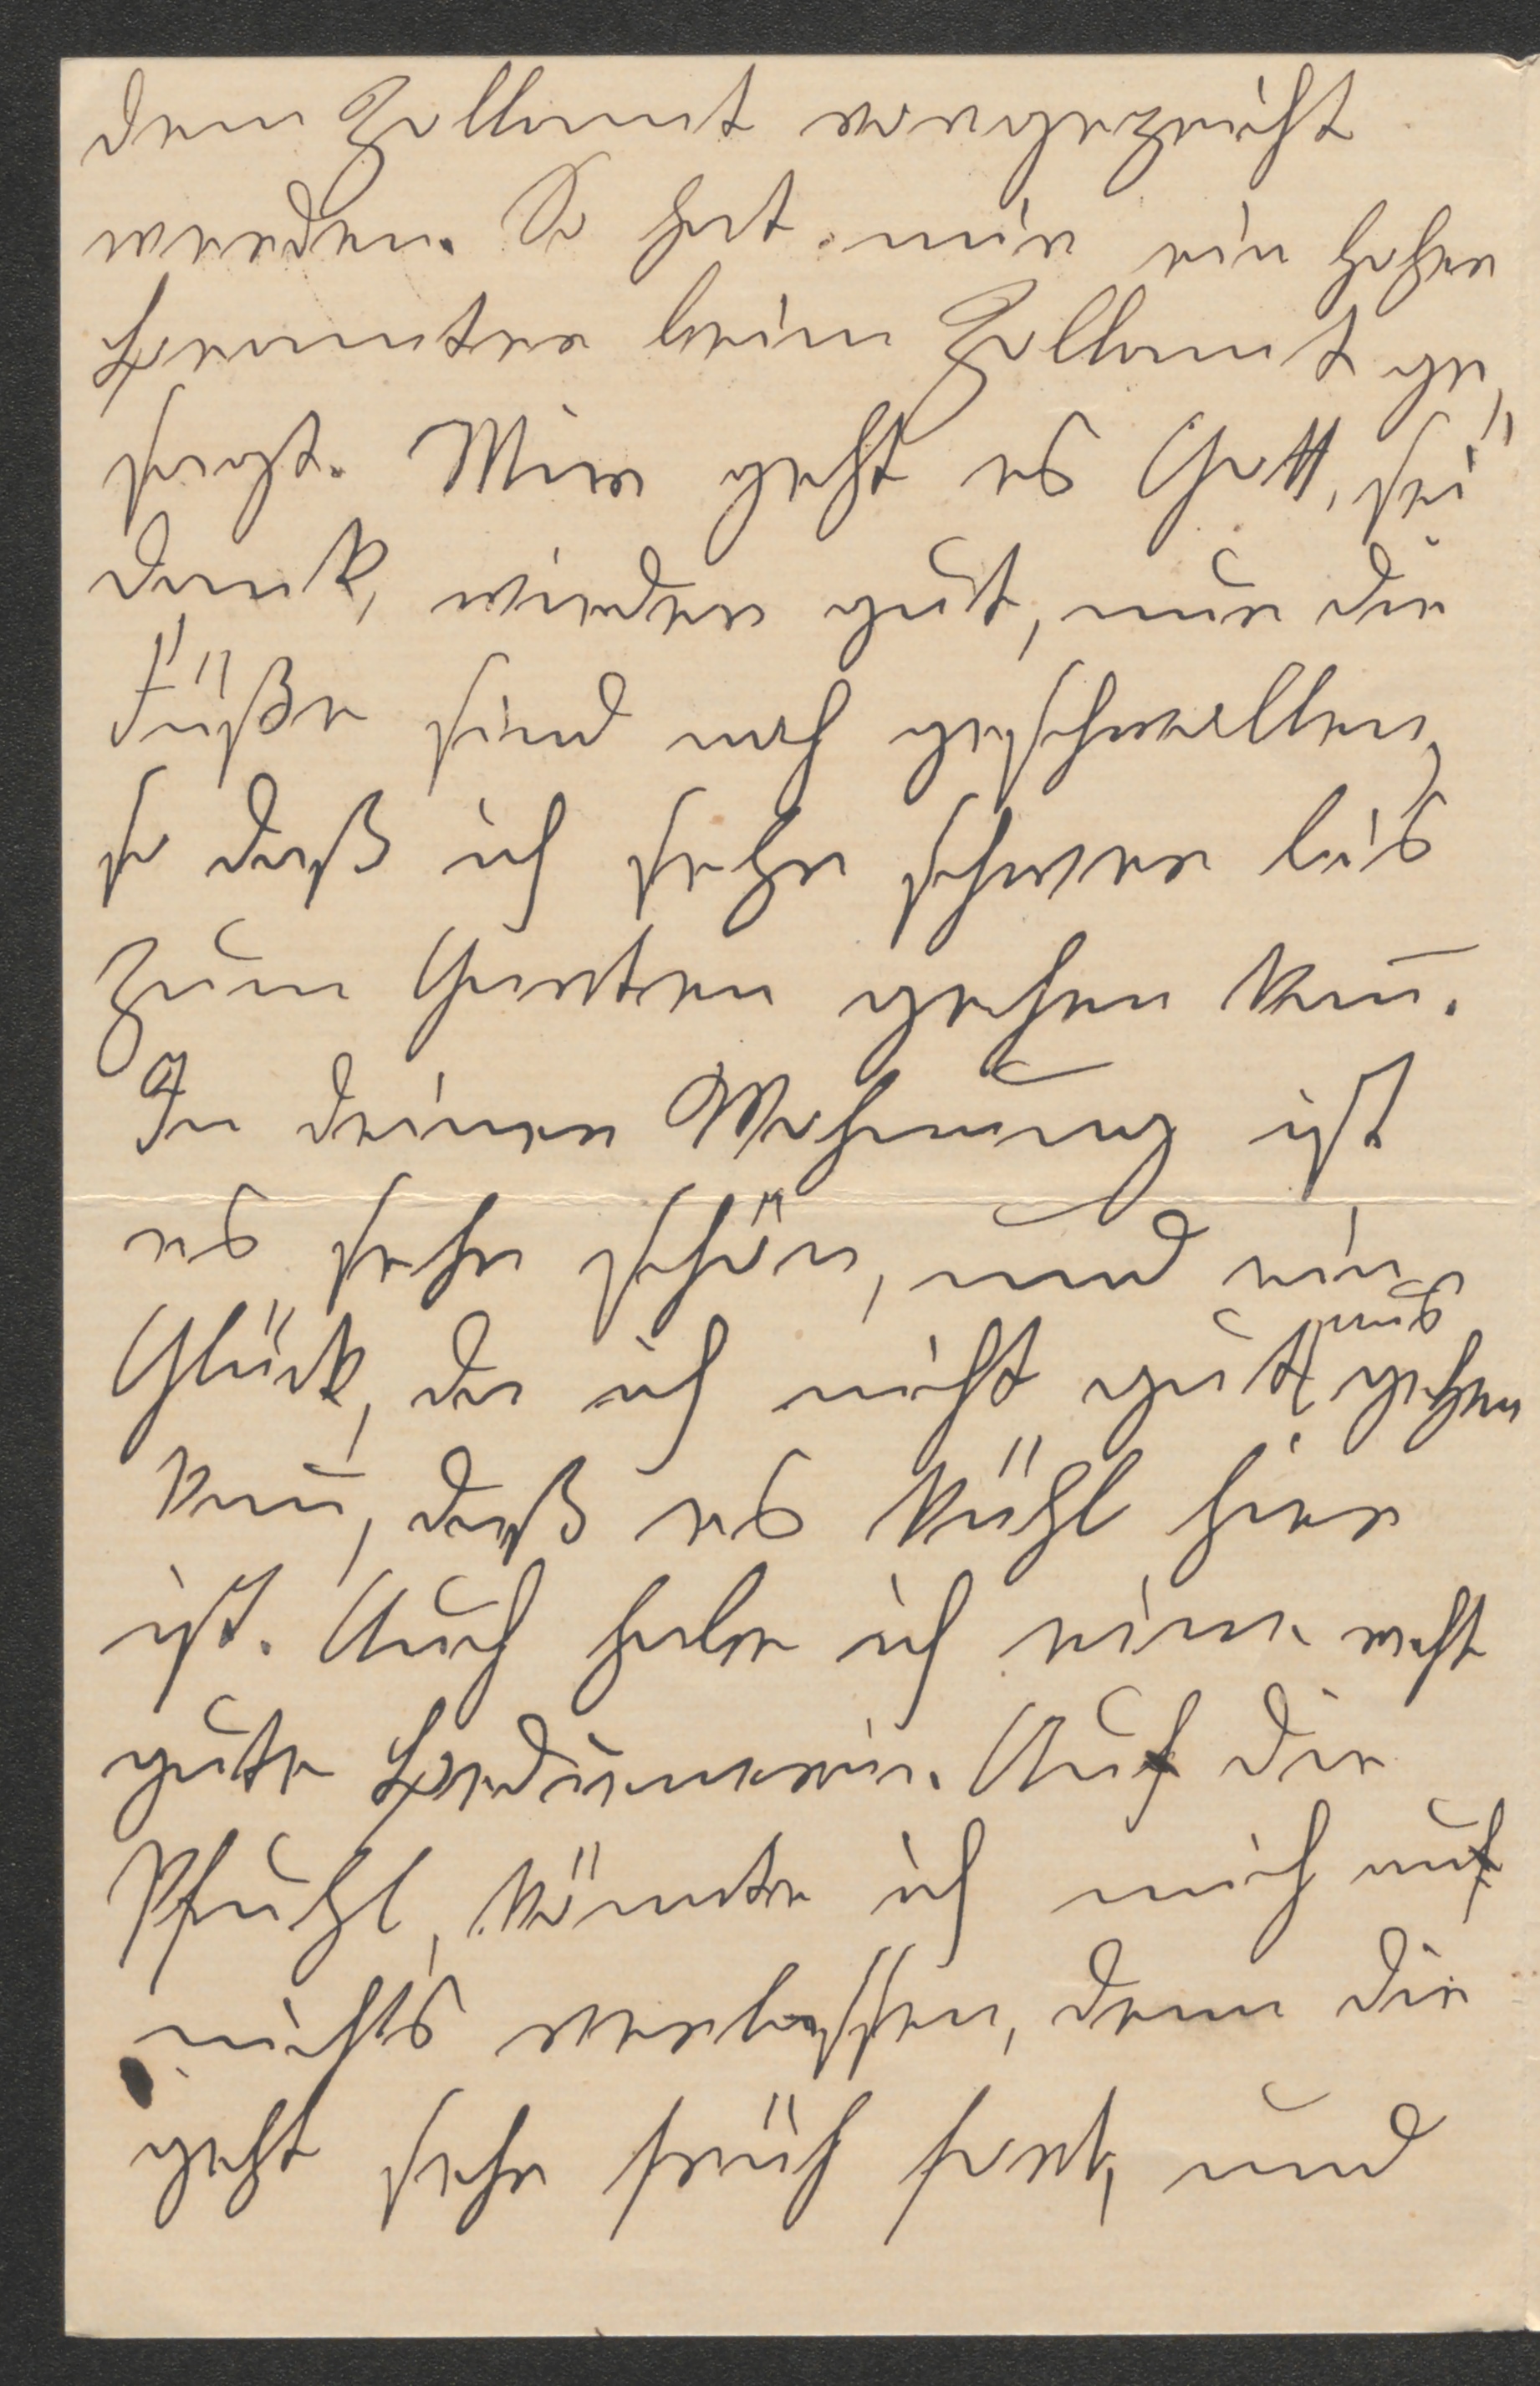 dem Zollamt vorgezeicht
werden. So hat mir ein hoher
Beamter beim Zollamt ge„
sagt. Mir geht es Gott, sei
dank, wieder gut, nur die
Füße sind noch geschwollen,
so daß ich sehr schwer bis
zum Garten gehen kan̅.
In deiner Wohnung ist
es sehr schön, und ein
Glück, da ich nicht gut aus gehen
kan̅, daß es kühl hier
ist. Auch habe ich eine recht
gute Bedienerin. Auf die
Pfuhl, könnte ich mich auf
nichts verlassen, denn die
geht sehr früh fort, und